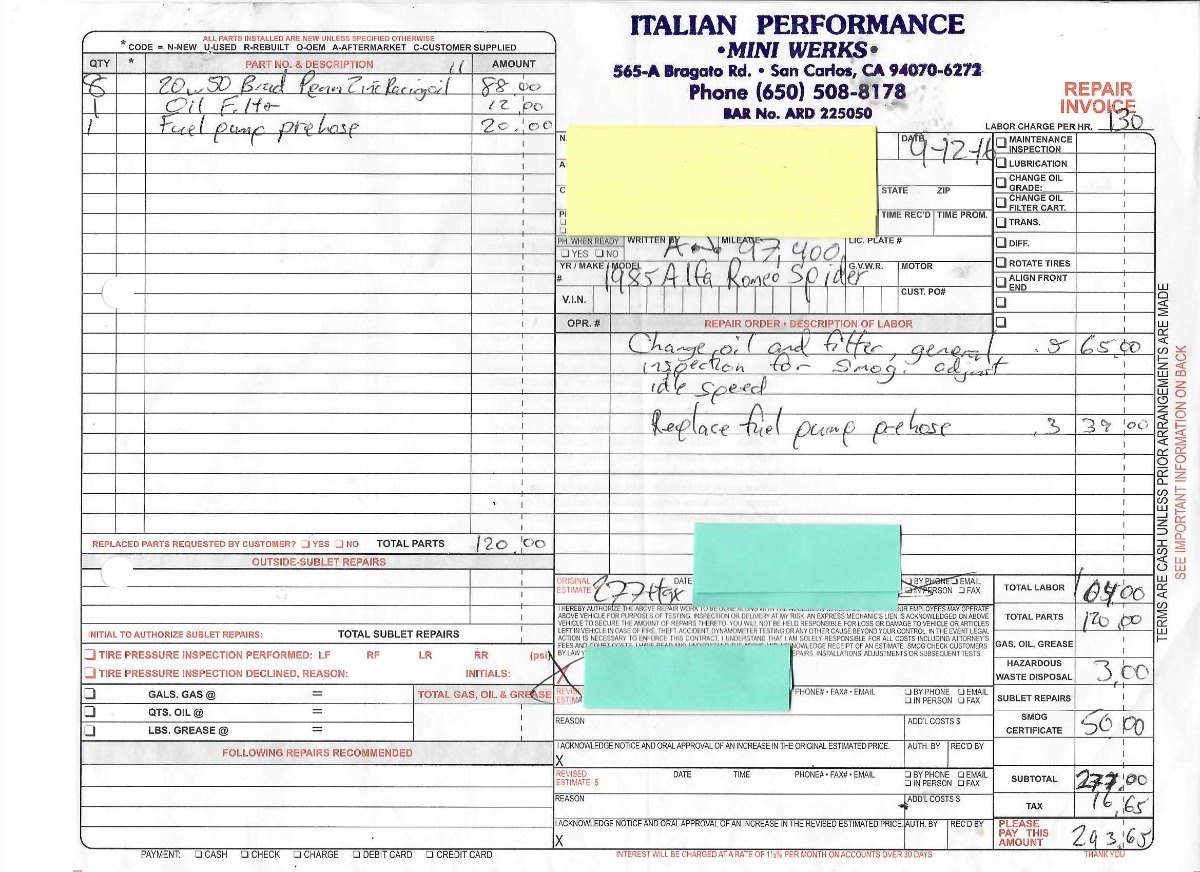 ITALIAN PERFORMANCE
•MINI WERKS•
565-A Bragato Rd. • San Carlos, CA 94070-6272
Phone (650) 508-8178
BAR No. ARD 225050
REPAIR
INVOICE
LABOR CHARGE PER HR. 130
ALL PARTS INSTALLED ARE NEW UNLESS SPECIFIED OTHERWISE
* CODE = N-NEW U-USED R-REBUILT O-OEM A-AFTERMARKET C-CUSTOMER SUPPLIED
QTY * PART NO. & DESCRIPTION 11 AMOUNT
8 20w50 Brad Penn Zinc Racing oil 88.00
1 Oil Filter 12.00
1 Fuel pump prehose 20.00
REPLACED PARTS REQUESTED BY CUSTOMER? YES NO TOTAL PARTS 120.00
OUTSIDE-SUBLET REPAIRS
INITIAL TO AUTHORIZE SUBLET REPAIRS: TOTAL SUBLET REPAIRS
TIRE PRESSURE INSPECTION PERFORMED: LF RF LR RR (psi)
TIRE PRESSURE INSPECTION DECLINED, REASON: INITIALS:
GALS. GAS @ = TOTAL GAS, OIL & GREASE
QTS. OIL @ =
LBS. GREASE @ =
FOLLOWING REPAIRS RECOMMENDED
PAYMENT: CASH CHECK CHARGE DEBIT CARD CREDIT CARD
DATE 9-12-16
STATE ZIP
TIME REC'D TIME PROM.
PH. WHEN READY YES NO
WRITTEN BY MILEAGE 97,400 LIC. PLATE #
YR / MAKE / MODEL 1985 Alfa Romeo Spider G.V.W.R. MOTOR
#
V.I.N. CUST. PO#
MAINTENANCE INSPECTION
LUBRICATION
CHANGE OIL GRADE:
CHANGE OIL FILTER CART.
TRANS.
DIFF.
ROTATE TIRES
ALIGN FRONT END
OPR. # REPAIR ORDER • DESCRIPTION OF LABOR
Change oil and filter, general .5 65.00
inspection for smog. adjust
idle speed
Replace fuel pump prehose .3 39.00
ORIGINAL ESTIMATE 277+tax DATE BY PHONE EMAIL IN PERSON FAX
I HEREBY AUTHORIZE THE ABOVE REPAIR WORK TO BE DONE ALONG WITH THE
YOUR EMPLOYEES MAY OPERATE
ABOVE VEHICLE FOR PURPOSES OF TESTING, INSPECTION OR DELIVERY AT MY RISK. AN EXPRESS MECHANIC'S LIEN IS ACKNOWLEDGED ON ABOVE
VEHICLE TO SECURE THE AMOUNT OF REPAIRS THERETO. YOU WILL NOT BE HELD RESPONSIBLE FOR LOSS OR DAMAGE TO VEHICLE OR ARTICLES
LEFT IN VEHICLE IN CASE OF FIRE, THEFT, ACCIDENT, DYNAMOMETER TESTING OR ANY OTHER CAUSE BEYOND YOUR CONTROL. IN THE EVENT LEGAL
ACTION IS NECESSARY TO ENFORCE THIS CONTRACT, I UNDERSTAND THAT I AM SOLELY RESPONSIBLE FOR ALL COSTS INCLUDING ATTORNEY'S
RECEIPT OF AN ESTIMATE. SMOG CHECK CUSTOMERS
BY LAW REPAIRS, INSTALLATIONS ADJUSTMENTS OR SUBSEQUENT TESTS.
X
REVISED ESTIMATE PHONE# • FAX# • EMAIL BY PHONE EMAIL IN PERSON FAX
REASON ADD'L COSTS $
I ACKNOWLEDGE NOTICE AND ORAL APPROVAL OF AN INCREASE IN THE ORIGINAL ESTIMATED PRICE. AUTH. BY REC'D BY
X
REVISED ESTIMATE $ DATE TIME PHONE# • FAX# • EMAIL BY PHONE EMAIL IN PERSON FAX
REASON ADD'L COSTS $
I ACKNOWLEDGE NOTICE AND ORAL APPROVAL OF AN INCREASE IN THE REVISED ESTIMATED PRICE. AUTH. BY REC'D BY
X
INTEREST WILL BE CHARGED AT A RATE OF 1½% PER MONTH ON ACCOUNTS OVER 30 DAYS
TOTAL LABOR 104.00
TOTAL PARTS 120.00
GAS, OIL, GREASE
HAZARDOUS WASTE DISPOSAL 3.00
SUBLET REPAIRS
SMOG CERTIFICATE 50.00
SUBTOTAL 277.00
TAX 16.65
PLEASE PAY THIS AMOUNT 293.65
THANK YOU
TERMS ARE CASH UNLESS PRIOR ARRANGEMENTS ARE MADE
SEE IMPORTANT INFORMATION ON BACK